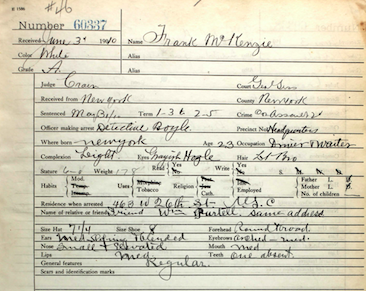 #46
Number 60337
Received June 3d 1910 Name Frank McKenzie
Color White Alias
Grade A Alias
Judge Crain Court Gen Sess
Received from New York County New York
Sentenced May 31/10 Term 1-3 to 2-5 Crime
Officer making arrest Boyle Precinct No. Headquarters
Where born new york Age 23 Occupation Driver Waiter
Complexion Light Eyes Hair
Stature Weight 178
Habits Mod. Uses Tobacco Religion Cath. Employed Father Mother No. of children
Residence when arrested 463 W 26th St N.Y.C
Name of relative or friend Friend Wm same address
Size Hat 7 1/4 Size Shoe 8 Forehead Round Broad
Ears Med Eyebrows Arched - med.
Nose Small Elevated Mouth Med
Lips Med Teeth One absent
General features Regular.
Scars and identification marks